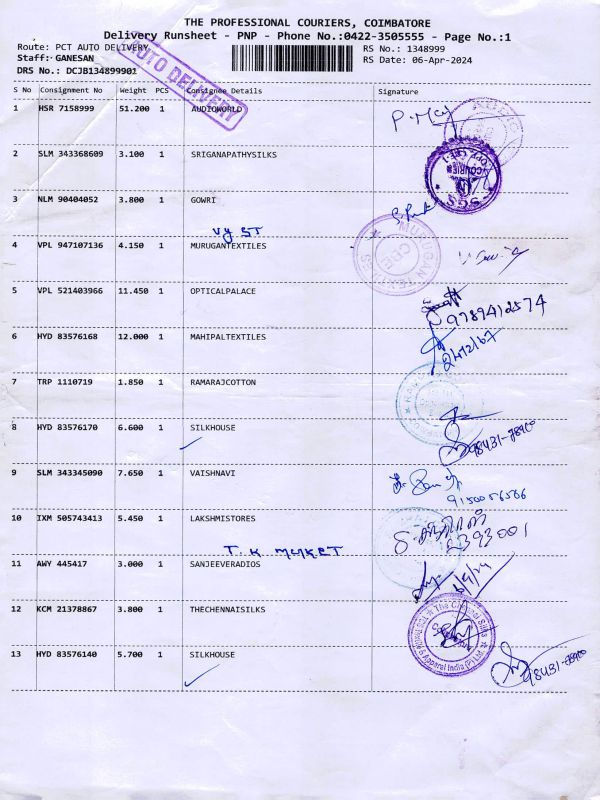 THE PROFESSIONAL COURIERS, COIMBATORE
Delivery Runsheet - PNP - Phone No.:0422-3505555 - Page No.:1
Route: PCT AUTO DELIVERY RS No.: 1348999
Staff: GANESAN RS Date: 06-Apr-2024
DRS No.: DCJB134899901
AUTO DELIVERY
S No Consignment No Weight PCS Consignee Details Signature
1 HSR 7158999 51.200 1 AUDIOWORLD
2 SLM 343368609 3.100 1 SRIGANAPATHYSILKS
3 NLM 90404052 3.800 1 GOWRI
Vy ST
4 VPL 947107136 4.150 1 MURUGANTEXTILES
MURUGAN TEXTILES
CBE
5 VPL 521403966 11.450 1 OPTICALPALACE
9789412574
6 HYD 83576168 12.000 1 MAHIPALTEXTILES
7 TRP 1110719 1.850 1 RAMARAJCOTTON
8 HYD 83576170 6.600 1 SILKHOUSE
9 SLM 343345090 7.650 1 VAISHNAVI
9150056566
10 IXM 505743413 5.450 1 LAKSHMISTORES
2393001
T. K MARKET
11 AWY 445417 3.000 1 SANJEEVERADIOS
6/4/24
12 KCM 21378867 3.800 1 THECHENNAISILKS
The Chennai Silks
Apparel India (P) Ltd
13 HYD 83576140 5.700 1 SILKHOUSE